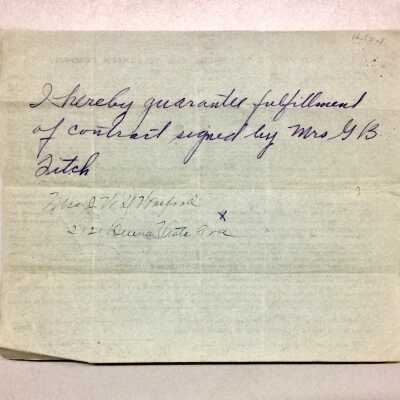 I hereby guarantee fulfillment
of contract signed by Mrs G B
Fitch
Mrs
x
Buena Vista Ave